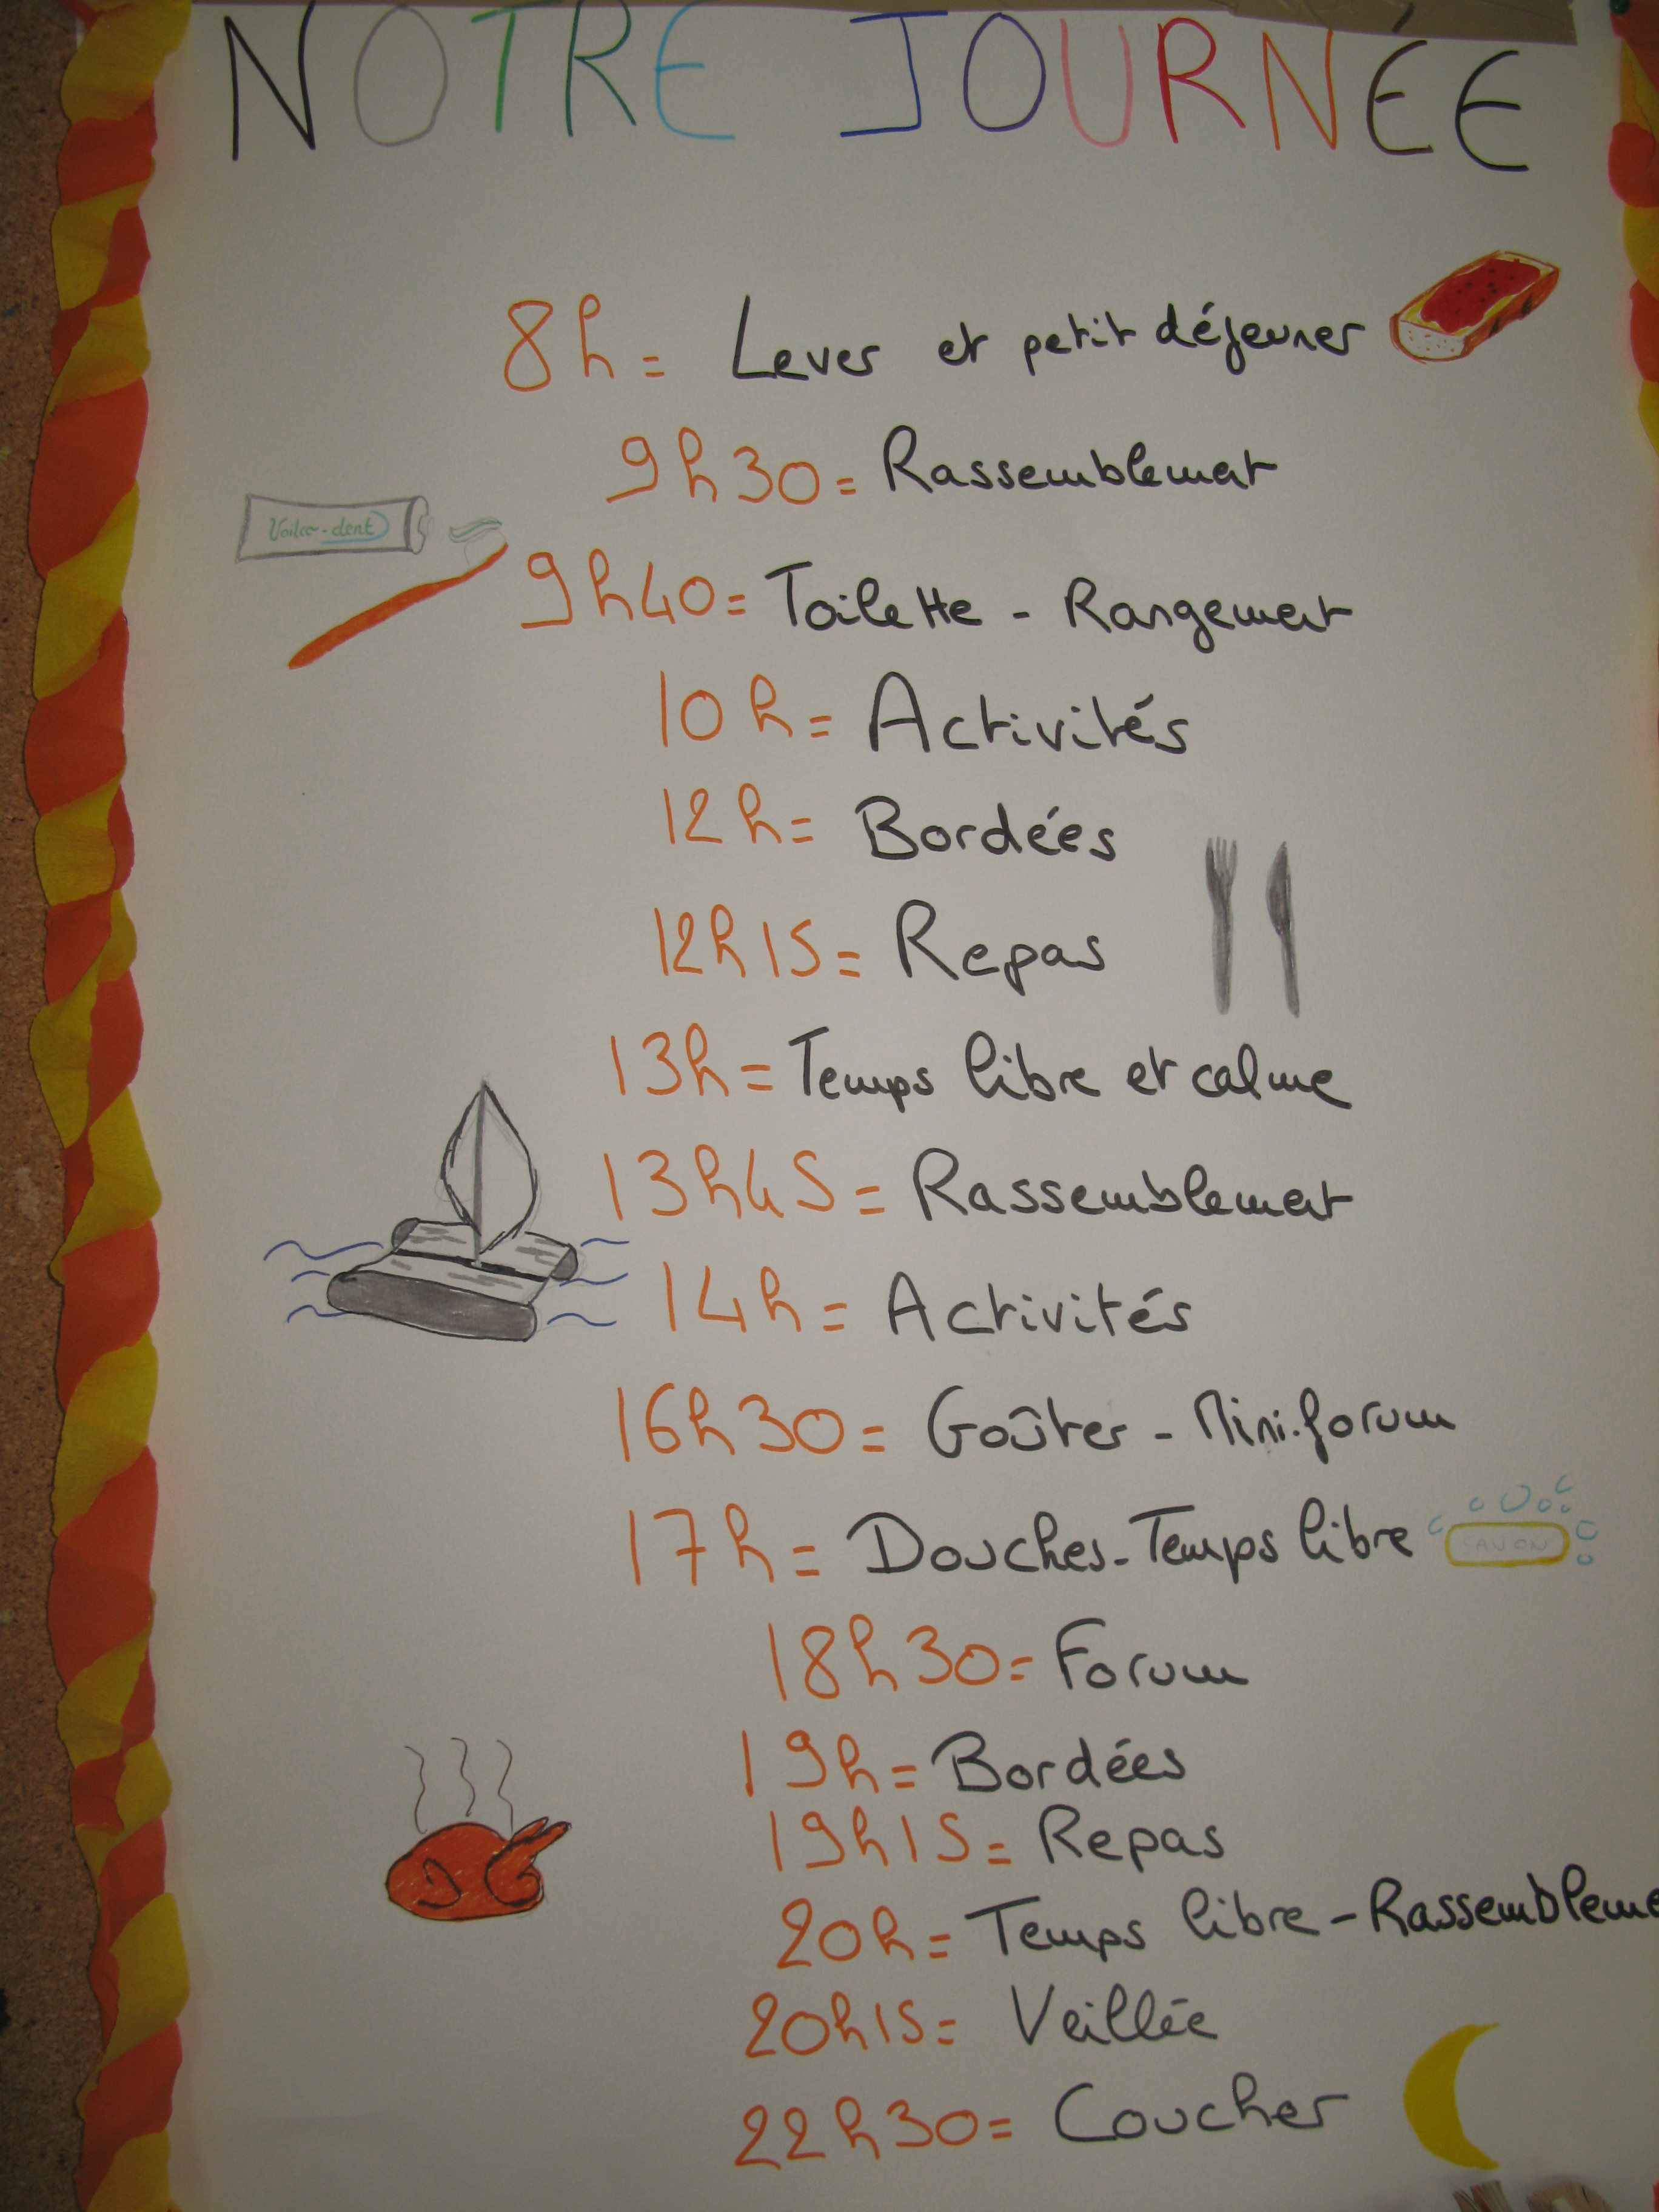 NOTRE JOURNÉE
8h = Lever et petit déjeuner
9h30 = Rassemblement
Voilco-dent
9h40 = Toilette - Rangement
10h = Activités
12h = Bordées
12h15 = Repas
13h = Temps libre et calme
13h45 = Rassemblement
14h = Activités
16h30 = Goûter - Mini-forum
17h = Douches - Temps libre
SAVON
18h30 = Forum
19h = Bordées
19h15 = Repas
20h = Temps libre - Rassembleme
20h15 = Veillée
22h30 = Coucher